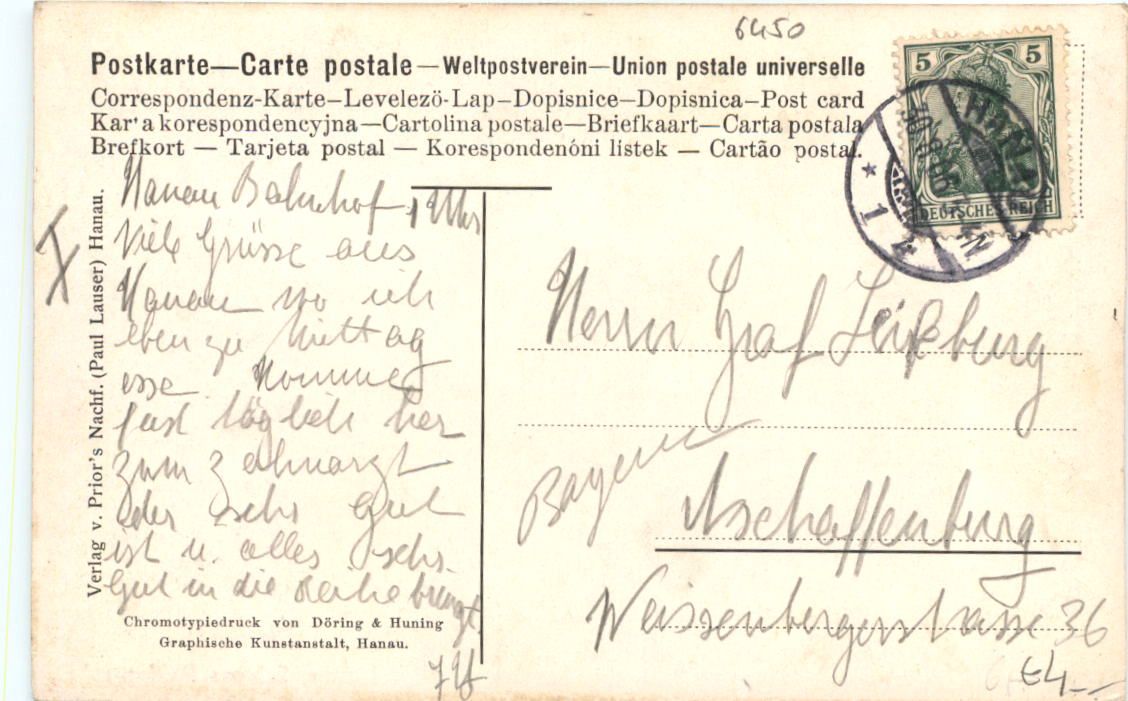 6450
Postkarte—Carte postale—Weltpostverein—Union postale universelle
Correspondenz-Karte—Levelezö-Lap—Dopisnice—Dopisnica—Post card
Kar'a korespondencyjna—Cartolina postale—Briefkaart—Carta postala
Brefkort — Tarjeta postal — Korespondenóni listek — Cartão postal.
5 5
DEUTSCHES REICH
HANAU
* 1
Hanau Bahnhof 1 Uhr
Viele Grüsse aus
Hanau wo ich
eben zu Mittag
esse Komme
fast täglich her
zum Zahnarzt
der sehr gut
ist u. alles sehr
gut in die Reihe bringt.
Herrn Graf
Bayern
Aschaffenburg
Weissenbergerstrasse 36
Verlag v. Prior's Nachf. (Paul Lauser) Hanau.
Chromotypiedruck von Döring & Huning
Graphische Kunstanstalt, Hanau.
€4.--